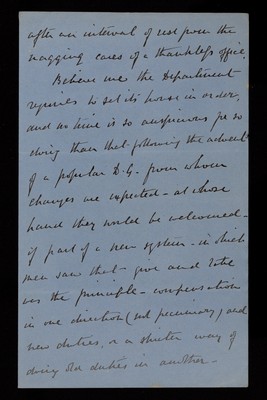 after an interval of rest from the
nagging cares of a thankless office.
Believe me the Department
requires to set its house in order,
and no time is so auspicious for so
doing than that following the advent
of a popular D.G. - from whom
changes are expected - at whose
hand they would be welcomed -
if part of a new system - in which
men saw that - give and take
was the principle - compensation
in one direction (not pecuniary) and
new duties, or a stricter way of
doing old duties in another -